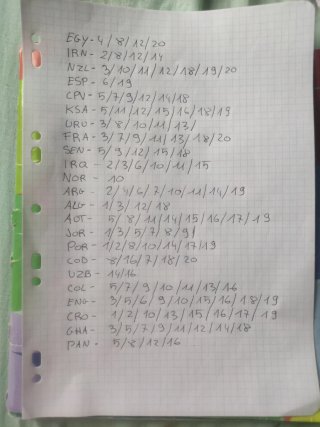 EGY - 4/8/12/20
IRN - 2/8/12/14
NZL - 3/10/11/12/18/19/20
ESP - 6/19
CPV - 5/7/9/12/14/18
KSA - 5/11/12/15/16/18/19
URU - 3/8/10/11/13/
FRA - 3/7/9/11/13/18/20
SEN - 5/9/12/15/18
IRQ - 2/3/6/10/11/15
NOR - 10
ARG - 2/4/6/7/10/11/14/19
ALG - 1/3/12/18
AUT - 5/8/11/14/15/16/17/19
JOR - 1/3/5/7/8/9/
POR - 1/2/8/10/14/17/19
COD - 8/16/7/18/20
UZB - 14/16
COL - 5/7/9/10/11/13/16
ENG - 3/5/6/9/10/15/16/18/19
CRO - 1/2/10/13/15/16/17/19
GHA - 3/5/7/9/11/12/14/18
PAN - 5/8/12/16